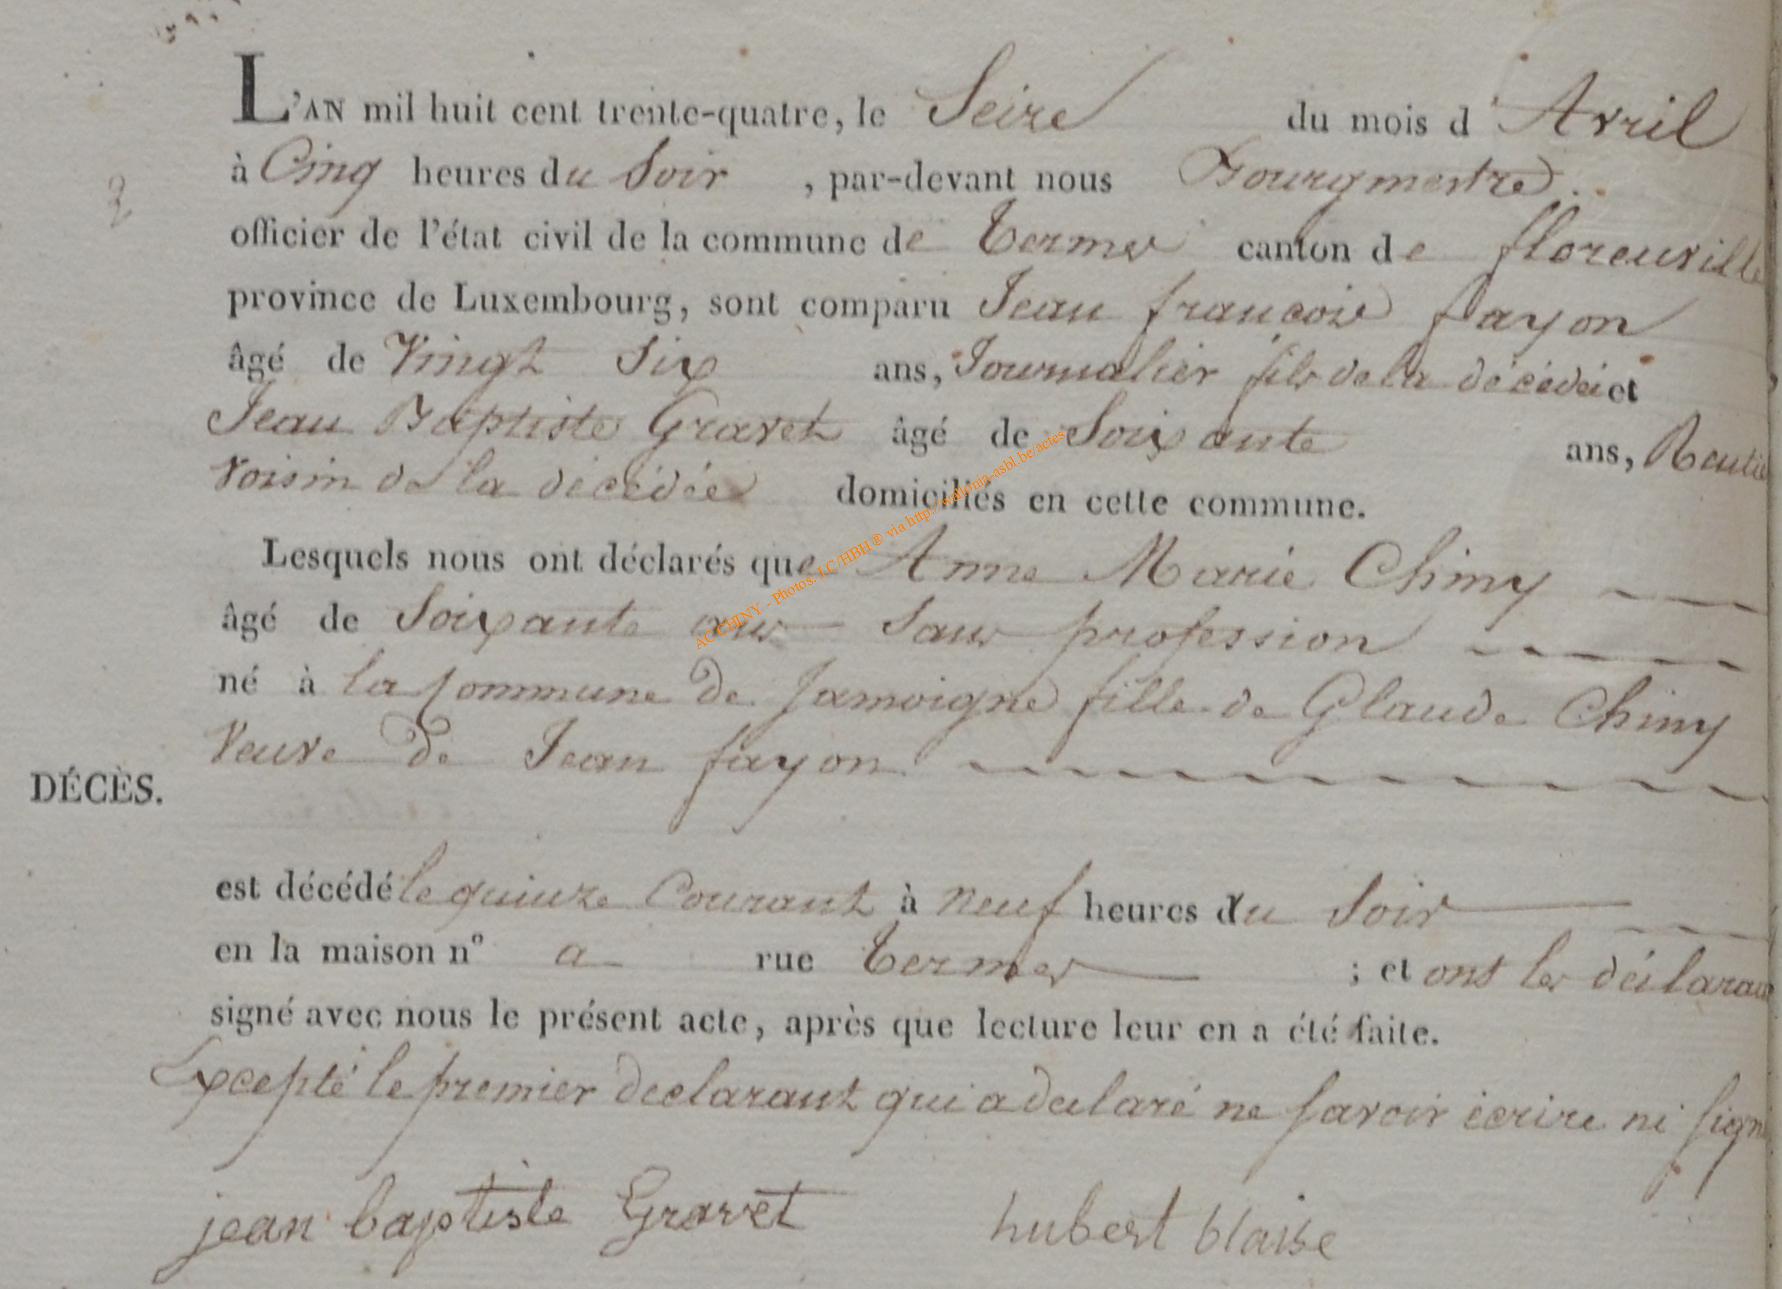 L'AN mil huit cent trente-quatre, le Seize du mois d'Avril
2
à Cinq heures du Soir, par-devant nous Bourgmestre
officier de l'état civil de la commune de Termes canton de florenville
province de Luxembourg, sont comparu Jean francois fayon
âgé de Vingt Six ans, Journalier fils de la décédée et
Jean Baptiste Gravet âgé de Soixante ans, Rentier
Voisin de la décédée domiciliés en cette commune.
AC/CHINY - Photos. LC/HBH ® via http://wallonia-asbl.be/actes
Lesquels nous ont déclarés que Anne Marie Chiny
âgé de Soixante ans Sans profession
né à la Commune de Jamoigne fille de Glaude Chiny
Veuve de Jean fayon
DÉCÈS.
est décédé le quinze Courant à neuf heures du Soir
en la maison n° a rue Termes ; et ont les déclarans
signé avec nous le présent acte, après que lecture leur en a été faite.
Excepté le premier declarant qui a declaré ne Savoir écrire ni Signé
jean baptiste Gravet hubert blaise